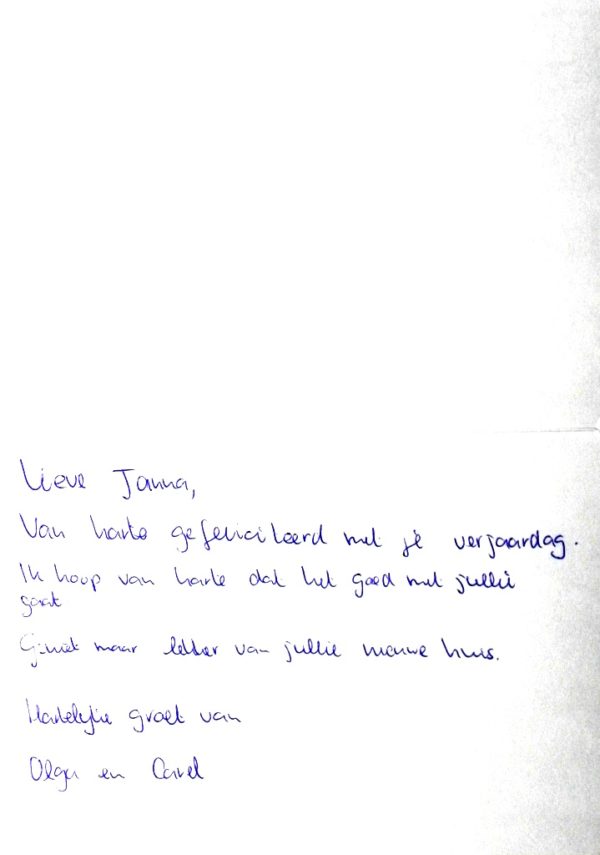 Lieve Janna,
Van harte gefeliciteerd met je verjaardag.
Ik hoop van harte dat het goed met jullie
gaat
Geniet maar lekker van jullie nieuwe huis.
Hartelijke groet van
Olga en Carel